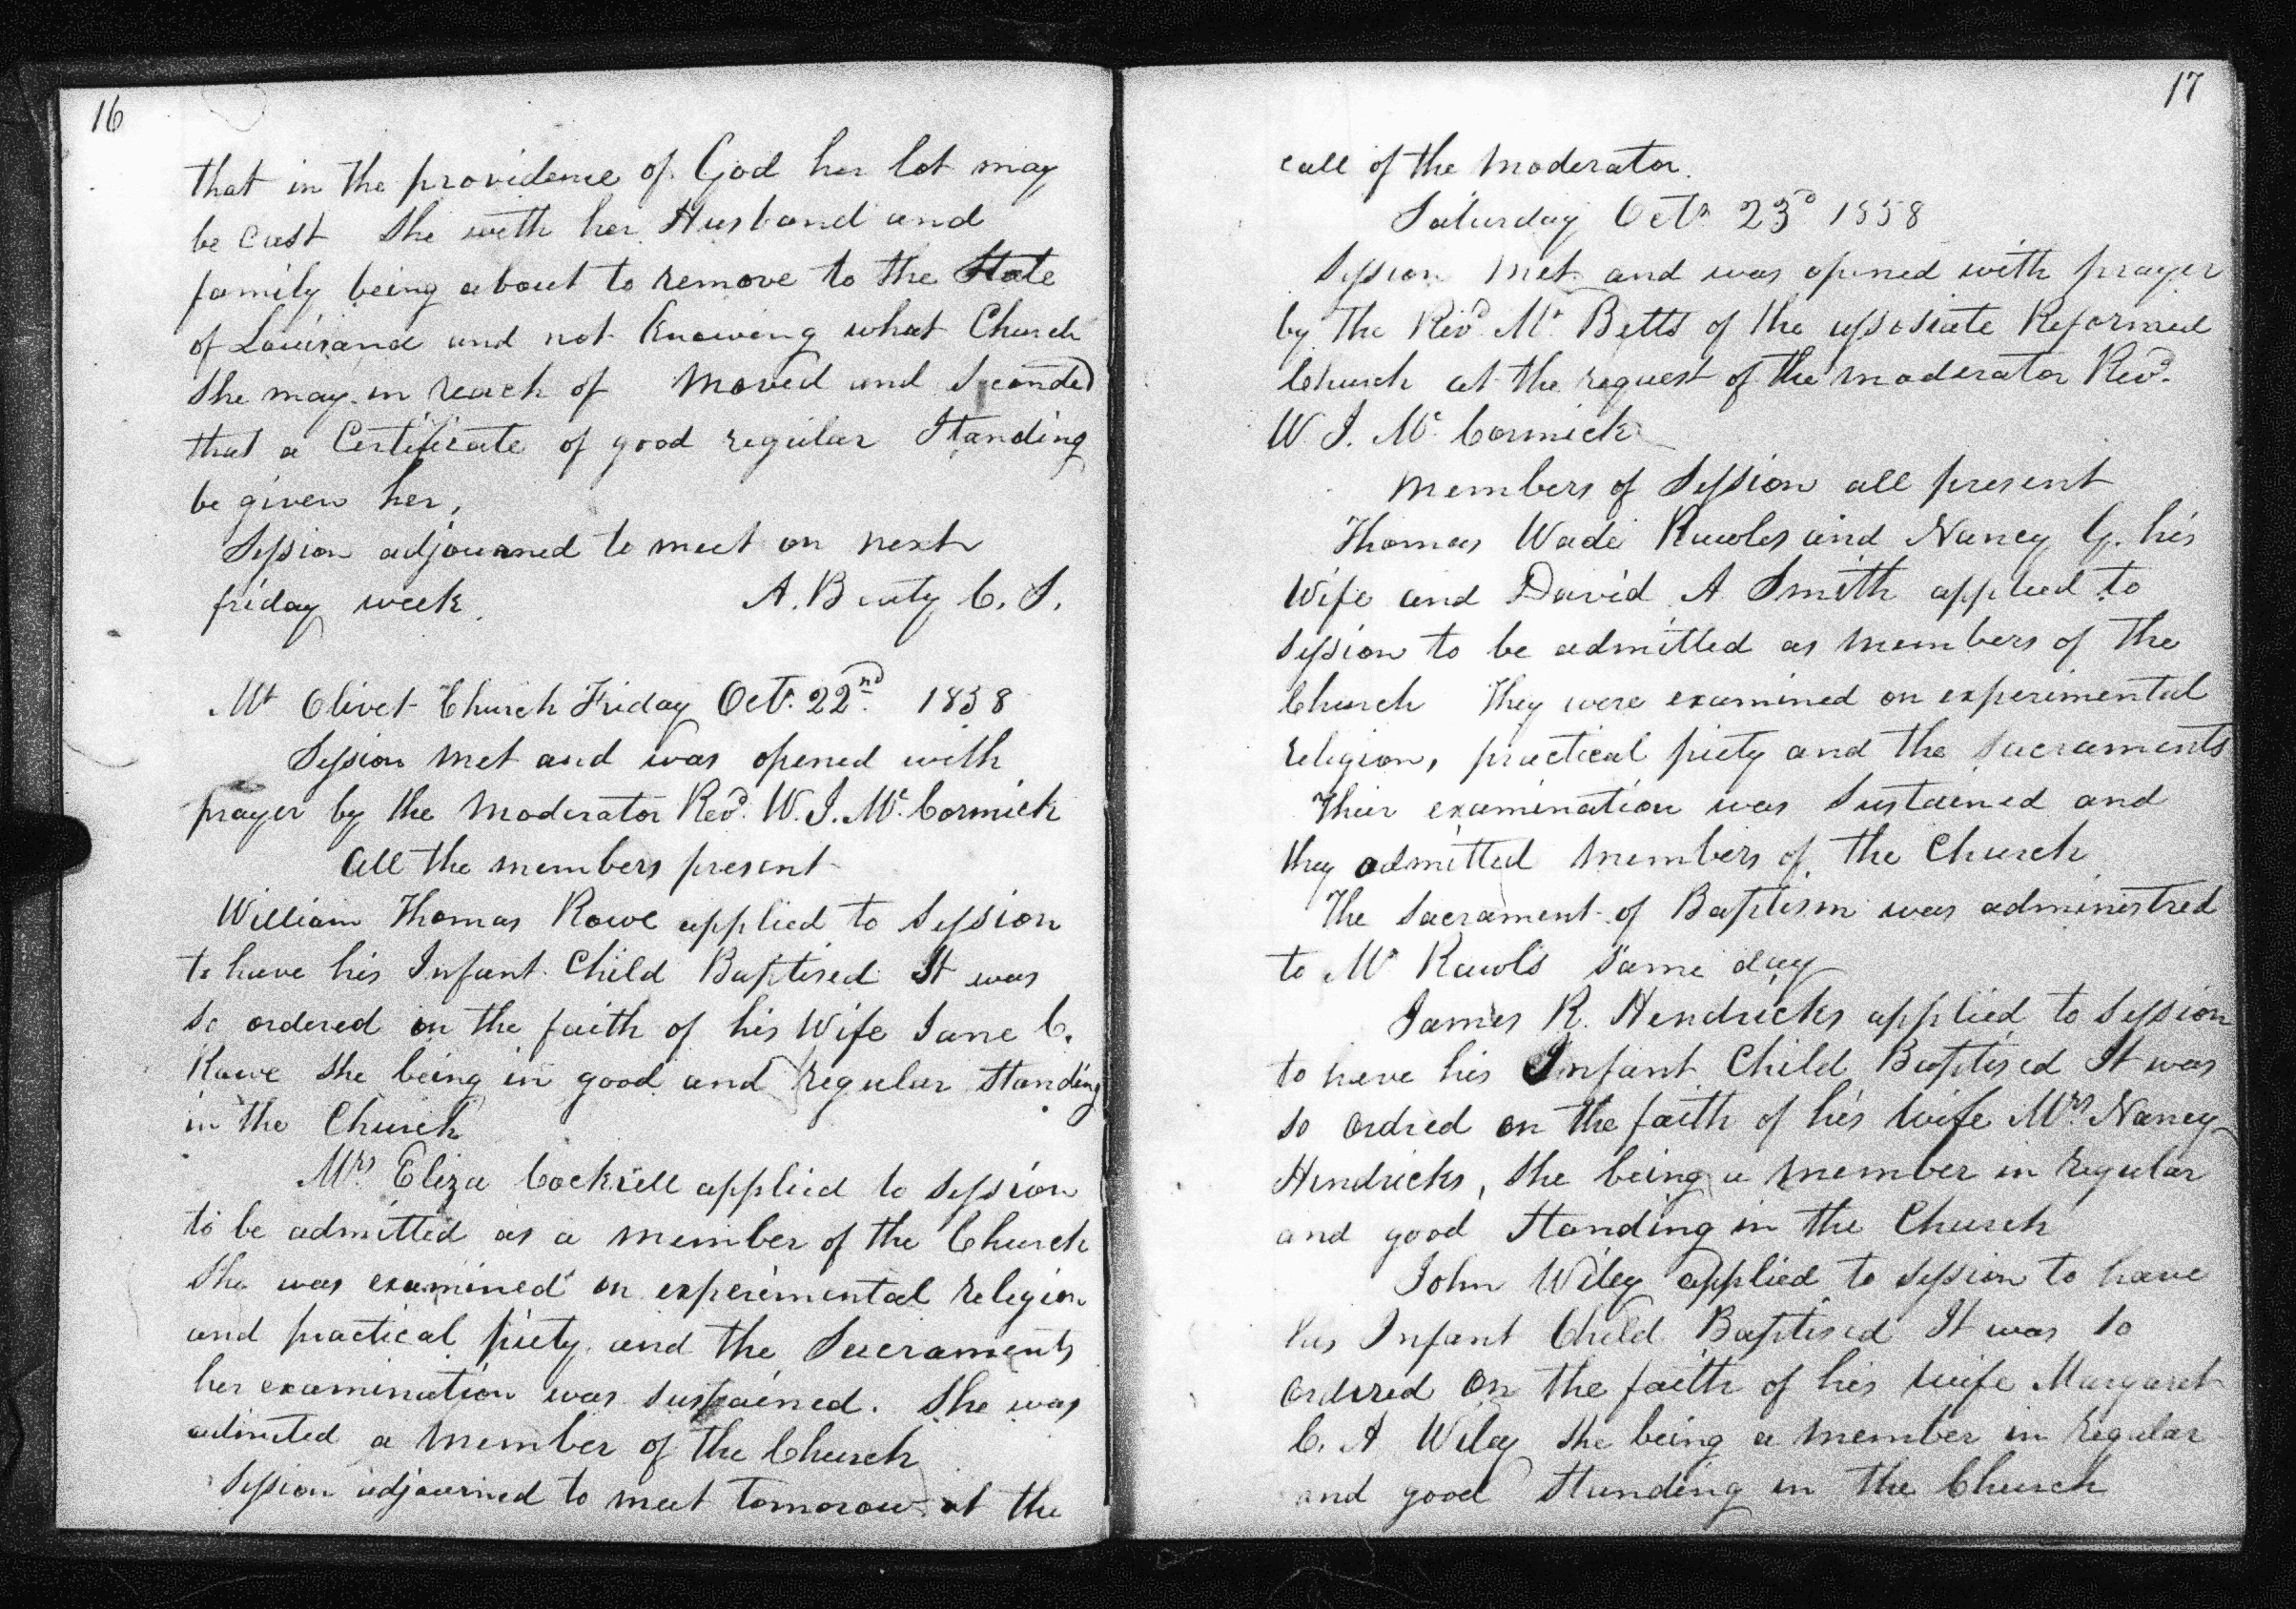 16
that in the providence of God her lot may
be cast she with her Husband and
family being about to remove to the State
of Louisana and not knowing what Church
she may in reach of moved and Seconded
that a Certificate of good regular Standing
be given her,
Session adjourned to meet on next
friday week. A. Beaty C. S.
Mt Olivet Church Friday Oct. 22nd 1858
Session met and was opened with
prayer by the Moderator Revd. W. J. Mc Cormick
All the members present
William Thomas Rowe applied to Session
to have his Infant Child Baptised It was
so ordered on the faith of his Wife Jane C.
Rowe she being in good and regular standing
in the Church
Mrs Eliza Cockrell applied to Session
to be admitted as a member of the Church
She was examined on experimental religion
and practical piety and the Sacraments
her examination was sustained. She was
admited a member of the Church
Session adjourned to meet tomorow at the
17
call of the Moderator.
Saturday Octr 23d 1858
Session met and was opened with prayer
by the Revd. Mr Betts of the assosiate Reformed
Church at the request of the moderator Revd.
W. J. Mc Cormick
Members of Session all present
Thomas Wade Rawls and Nancy G. his
Wife and David A Smith applied to
session to be admitted as members of the
Church They were examined on experimental
religion, practical piety and the sacraments
Their examination was Sustained and
they admitted members of the Church
The Sacrament of Baptism was administred
to Mr Rawls same day
James R. Hendricks applied to Session
to have his Infant Child Baptised It was
so ordred on the faith of his wife Mrs Nancy
Hendricks, she being a member in regular
and good Standing in the Church
John Wiley applied to session to have
his Infant Child Baptised It was so
ordered on the faith of his wife Margaret
C. A Wiley she being a member in regular
and good Standing in the Church